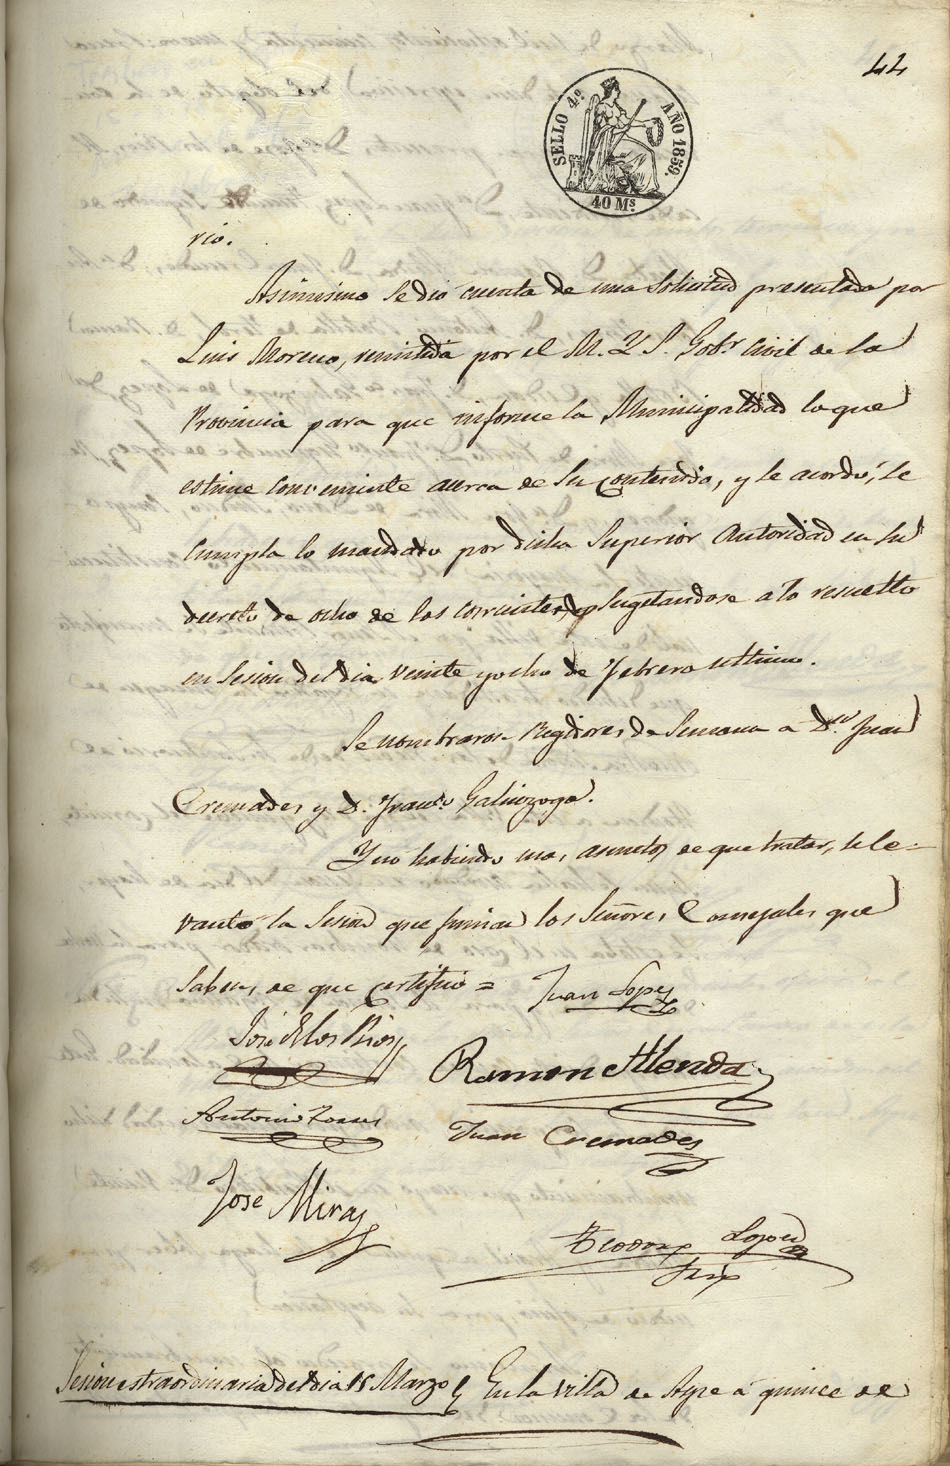 44
SELLO 4º AÑO 1859.
40 Ms.
rio.
Asimismo se dió cuenta de una Solicitud presentada por
Luis Moreno, remitida por el M. Y. S. Gobr. Civil de la
Provincia para que informe la Municipalidad lo que
estime conveniente acerca de su contenido, y se acordó, se
cumpla lo mandado por dicha Superior Autoridad en su
decreto de ocho de los corrientes, sugetandose a lo resuelto
en Sesion del dia veinte y ocho de Febrero ultimo.
Se nombraron Regidores de Semana a Dn. Juan
Cremades y D. Franco. Galinzoga.
Y no habiendo mas asuntos de que tratar, se le-
vantó la Sesion que firman los Señores Concejales que
saben, de que certifico =
Juan Lopez
José de los Rios
Ramon Alenda
Antonio Torres
Juan Cremades
Jose Miray
Teodoro Lopez
Srio
Sesion estraordinaria del dia 15 Marzo
En la villa de Aspe á quince de